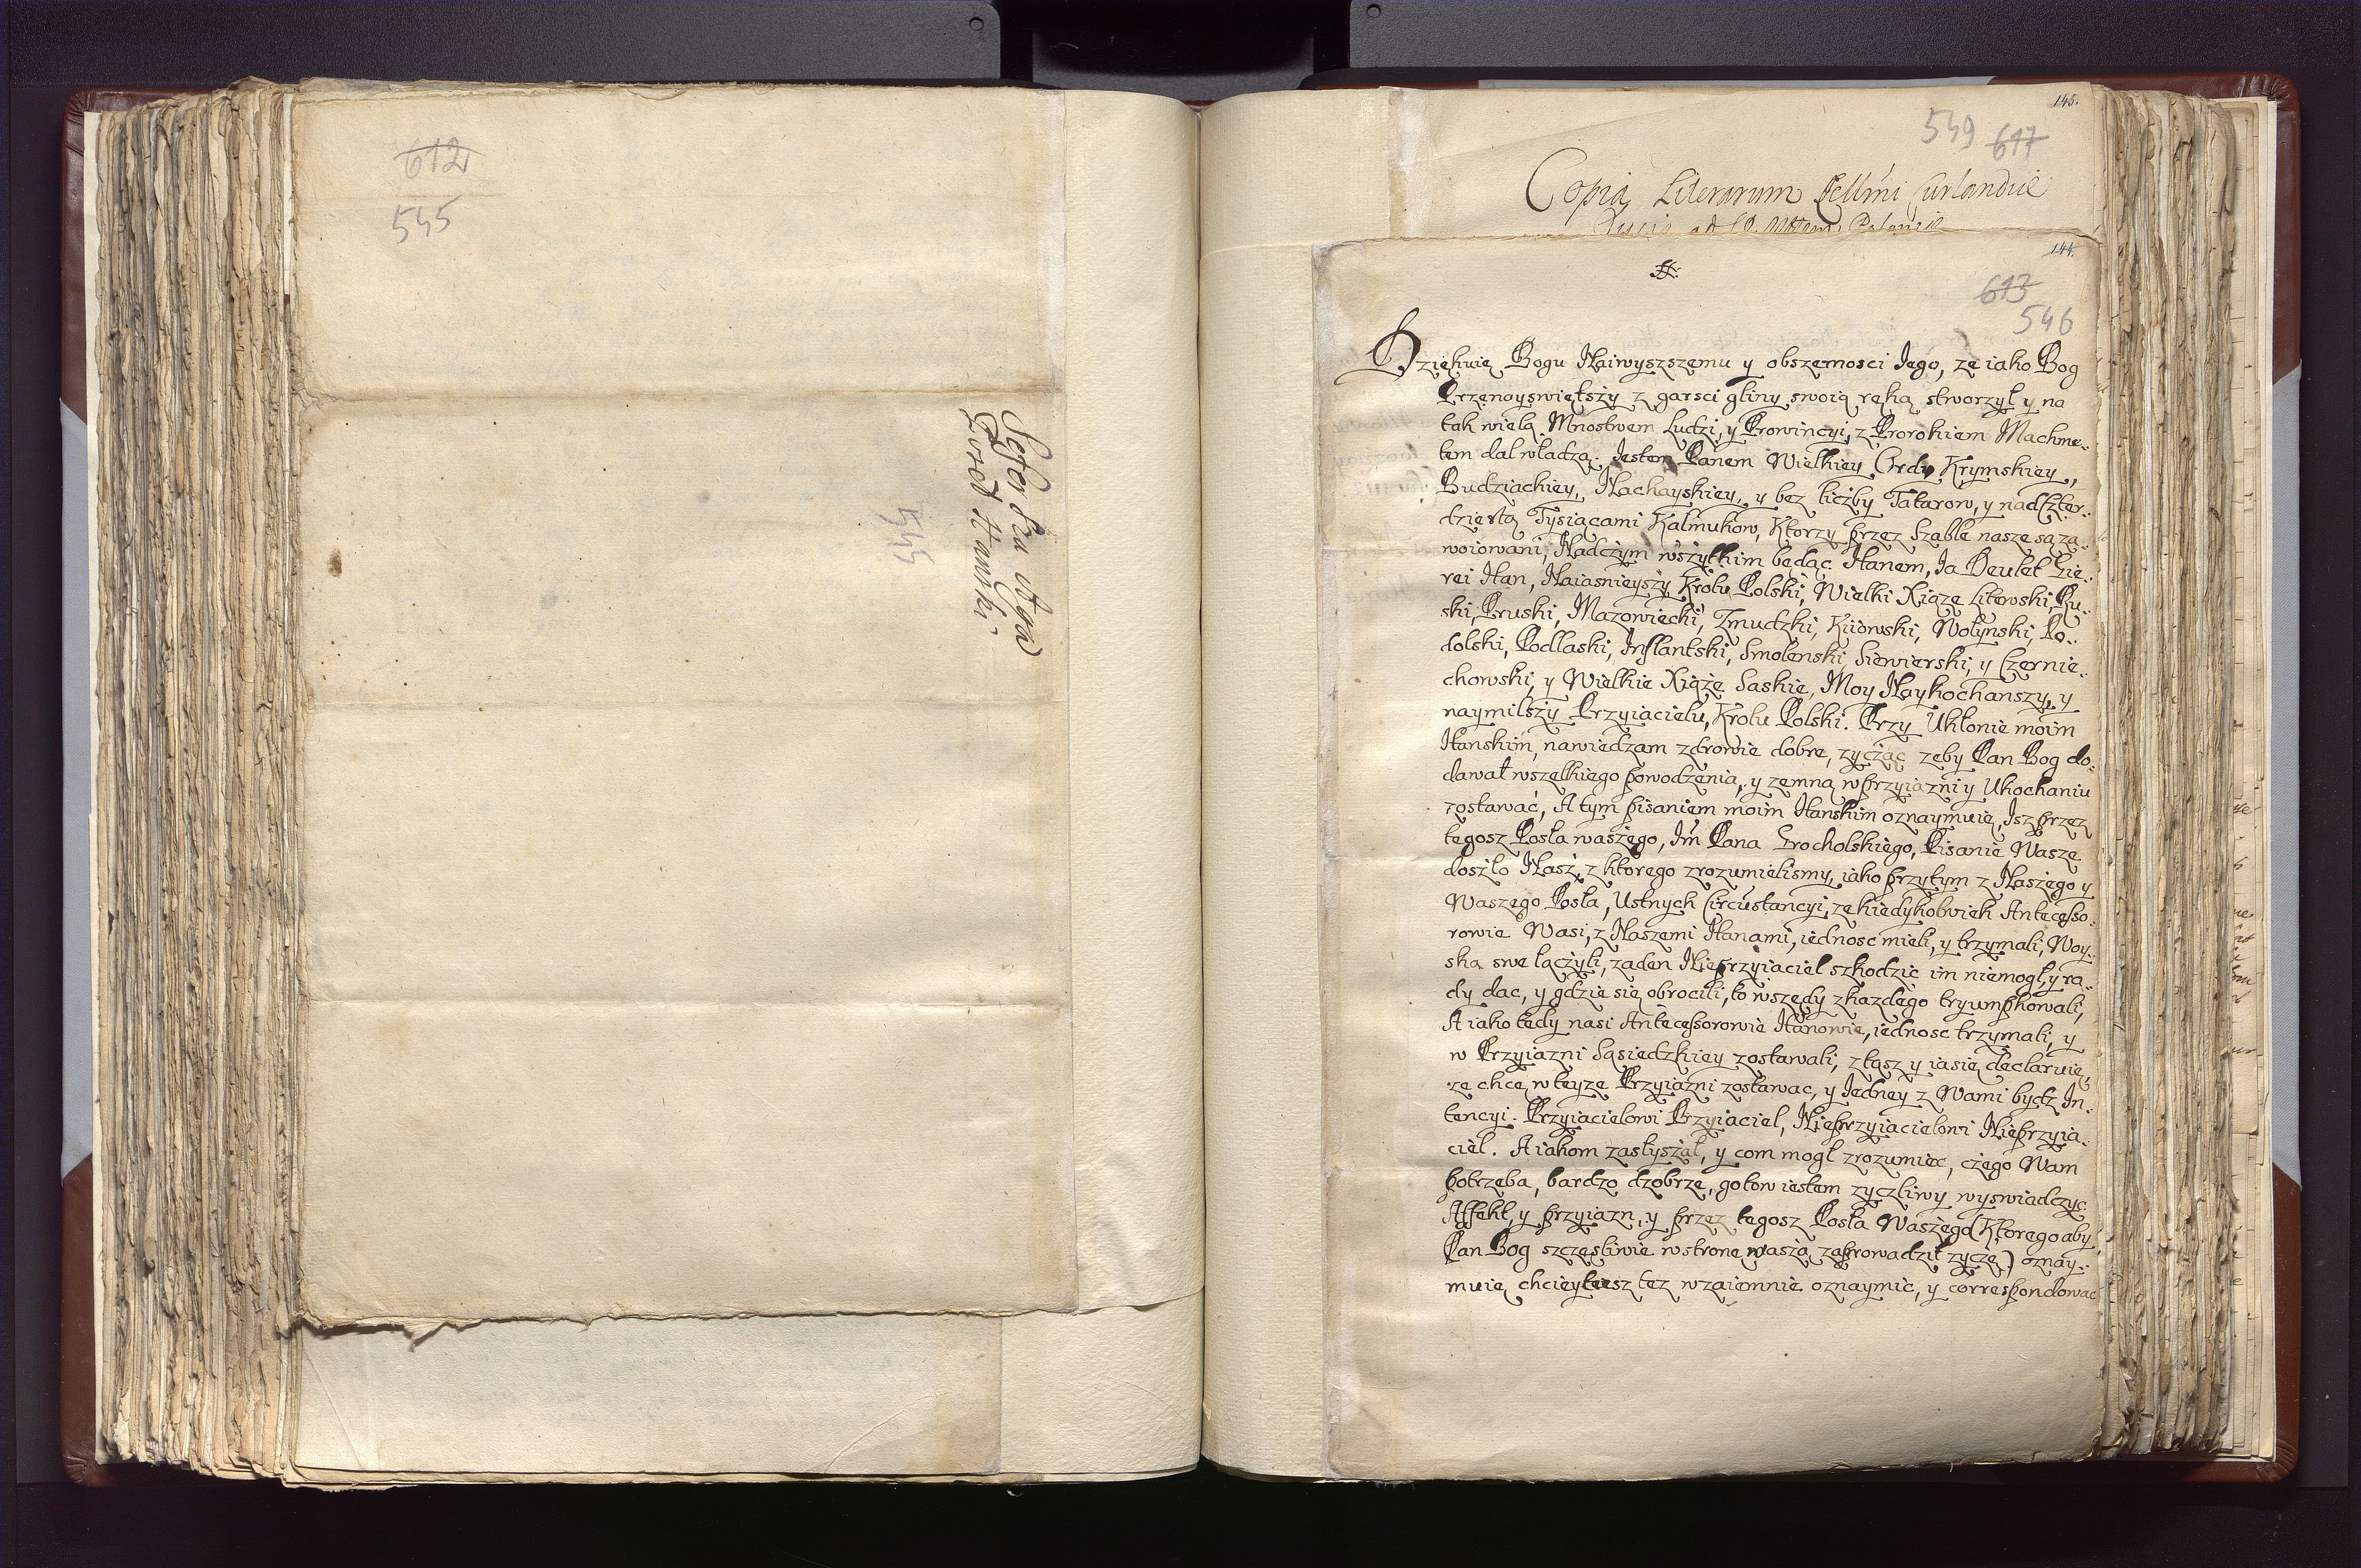 612
545
Sefer Sza Aga
Poseł Hanski
545
145.
549 617
Copia Literarum Cellmi Curlandiae
Ducis ad S. R. Mttem Poloniae
144.
613
546
Dziękuię Bogu Naiwyszszemu y obszernosci Jego, ze iako Bog
Przenayswiętszy z garsci gliny swoią ręką stworzył y na
tak wielą Mnostwem Ludzi, y Prowincyi, z Prorokiem Machme-
tem dal władzą. Jestem Panem Wielkiey Ordy Krymskiey,
Budziackiey, Nachayskiey, y bez liczby Tatarow, y nad Czter-
dziestą Tysiącami Kalmukow, Ktorzy przez Szable nasze są za-
woiowani, Nadczym wszytkim będąc Hanem, Ja Deulet Gie-
rei Han, Naiasnieyszy Krolu Polski, Wielki Xiąze Litewski, Ru-
ski, Pruski, Mazowiecki, Zmudzki, Kiiowski, Wołynski, Po-
dolski, Podlaski, Inflantski, Smolenski, Siewierski, y Czernie-
chowski, y Wielkie Xiąże Saskie, Moy Naykochanszy, y
naymilszy Przyiacielu, Krolu Polski. Przy Ukłonie moim
Hanskim, nawiedzam zdrowie dobre, zycząc zeby Pan Bog do-
dawał wszelkiego powodzenia, y zemną w przyiazni y Ukochaniu
zostawać, A tym pisaniem moim Hanskim oznaymuię, Isz przez
tegosz Posła waszego, Jm Pana Grocholskiego, Pisanie Wasze
doszło Nasz, z ktorego zrozumielismy, iako przytym z Naszego y
Waszego Posła, Ustnych Circustancyi, ze kiedykolwiek Antecesso-
rowie Wasi, z Naszemi Hanami, iednosc mieli, y trzymali, Woy-
ska swe łączyli, zaden Nieprzyiaciel szkodzic im niemogł, y ra-
dy dac, y gdzie się obrocili, to wszędy z kazdego tryumphowali,
A iako tedy nasi Antecessorowie Hanowie, iednosc trzymali, y
w Przyiazni Sąsiedzkiey zostawali, ztąsz y ia się declaruię,
ze chcę w teyze Przyiazni zostawac, y Jedney z Wami bydz In-
tencyi. Przyiacielowi Przyiaciel, Nieprzyiacielowi Nieprzyia-
ciel. A iakom zasłyszał, y com mogł zrozumiec, czego Wam
potrzeba, bardzo dobrze, gotow iestem zyczliwy wyswiadczyc
Affekt, y przyiazn, y przez tegosz Posła Waszego (Ktorego aby
Pan Bog szczęsliwie w stronę waszą zaprowadził zyczę) oznay-
muię, chcieyciesz tez wzaiemnie oznaymic, y correspondowac